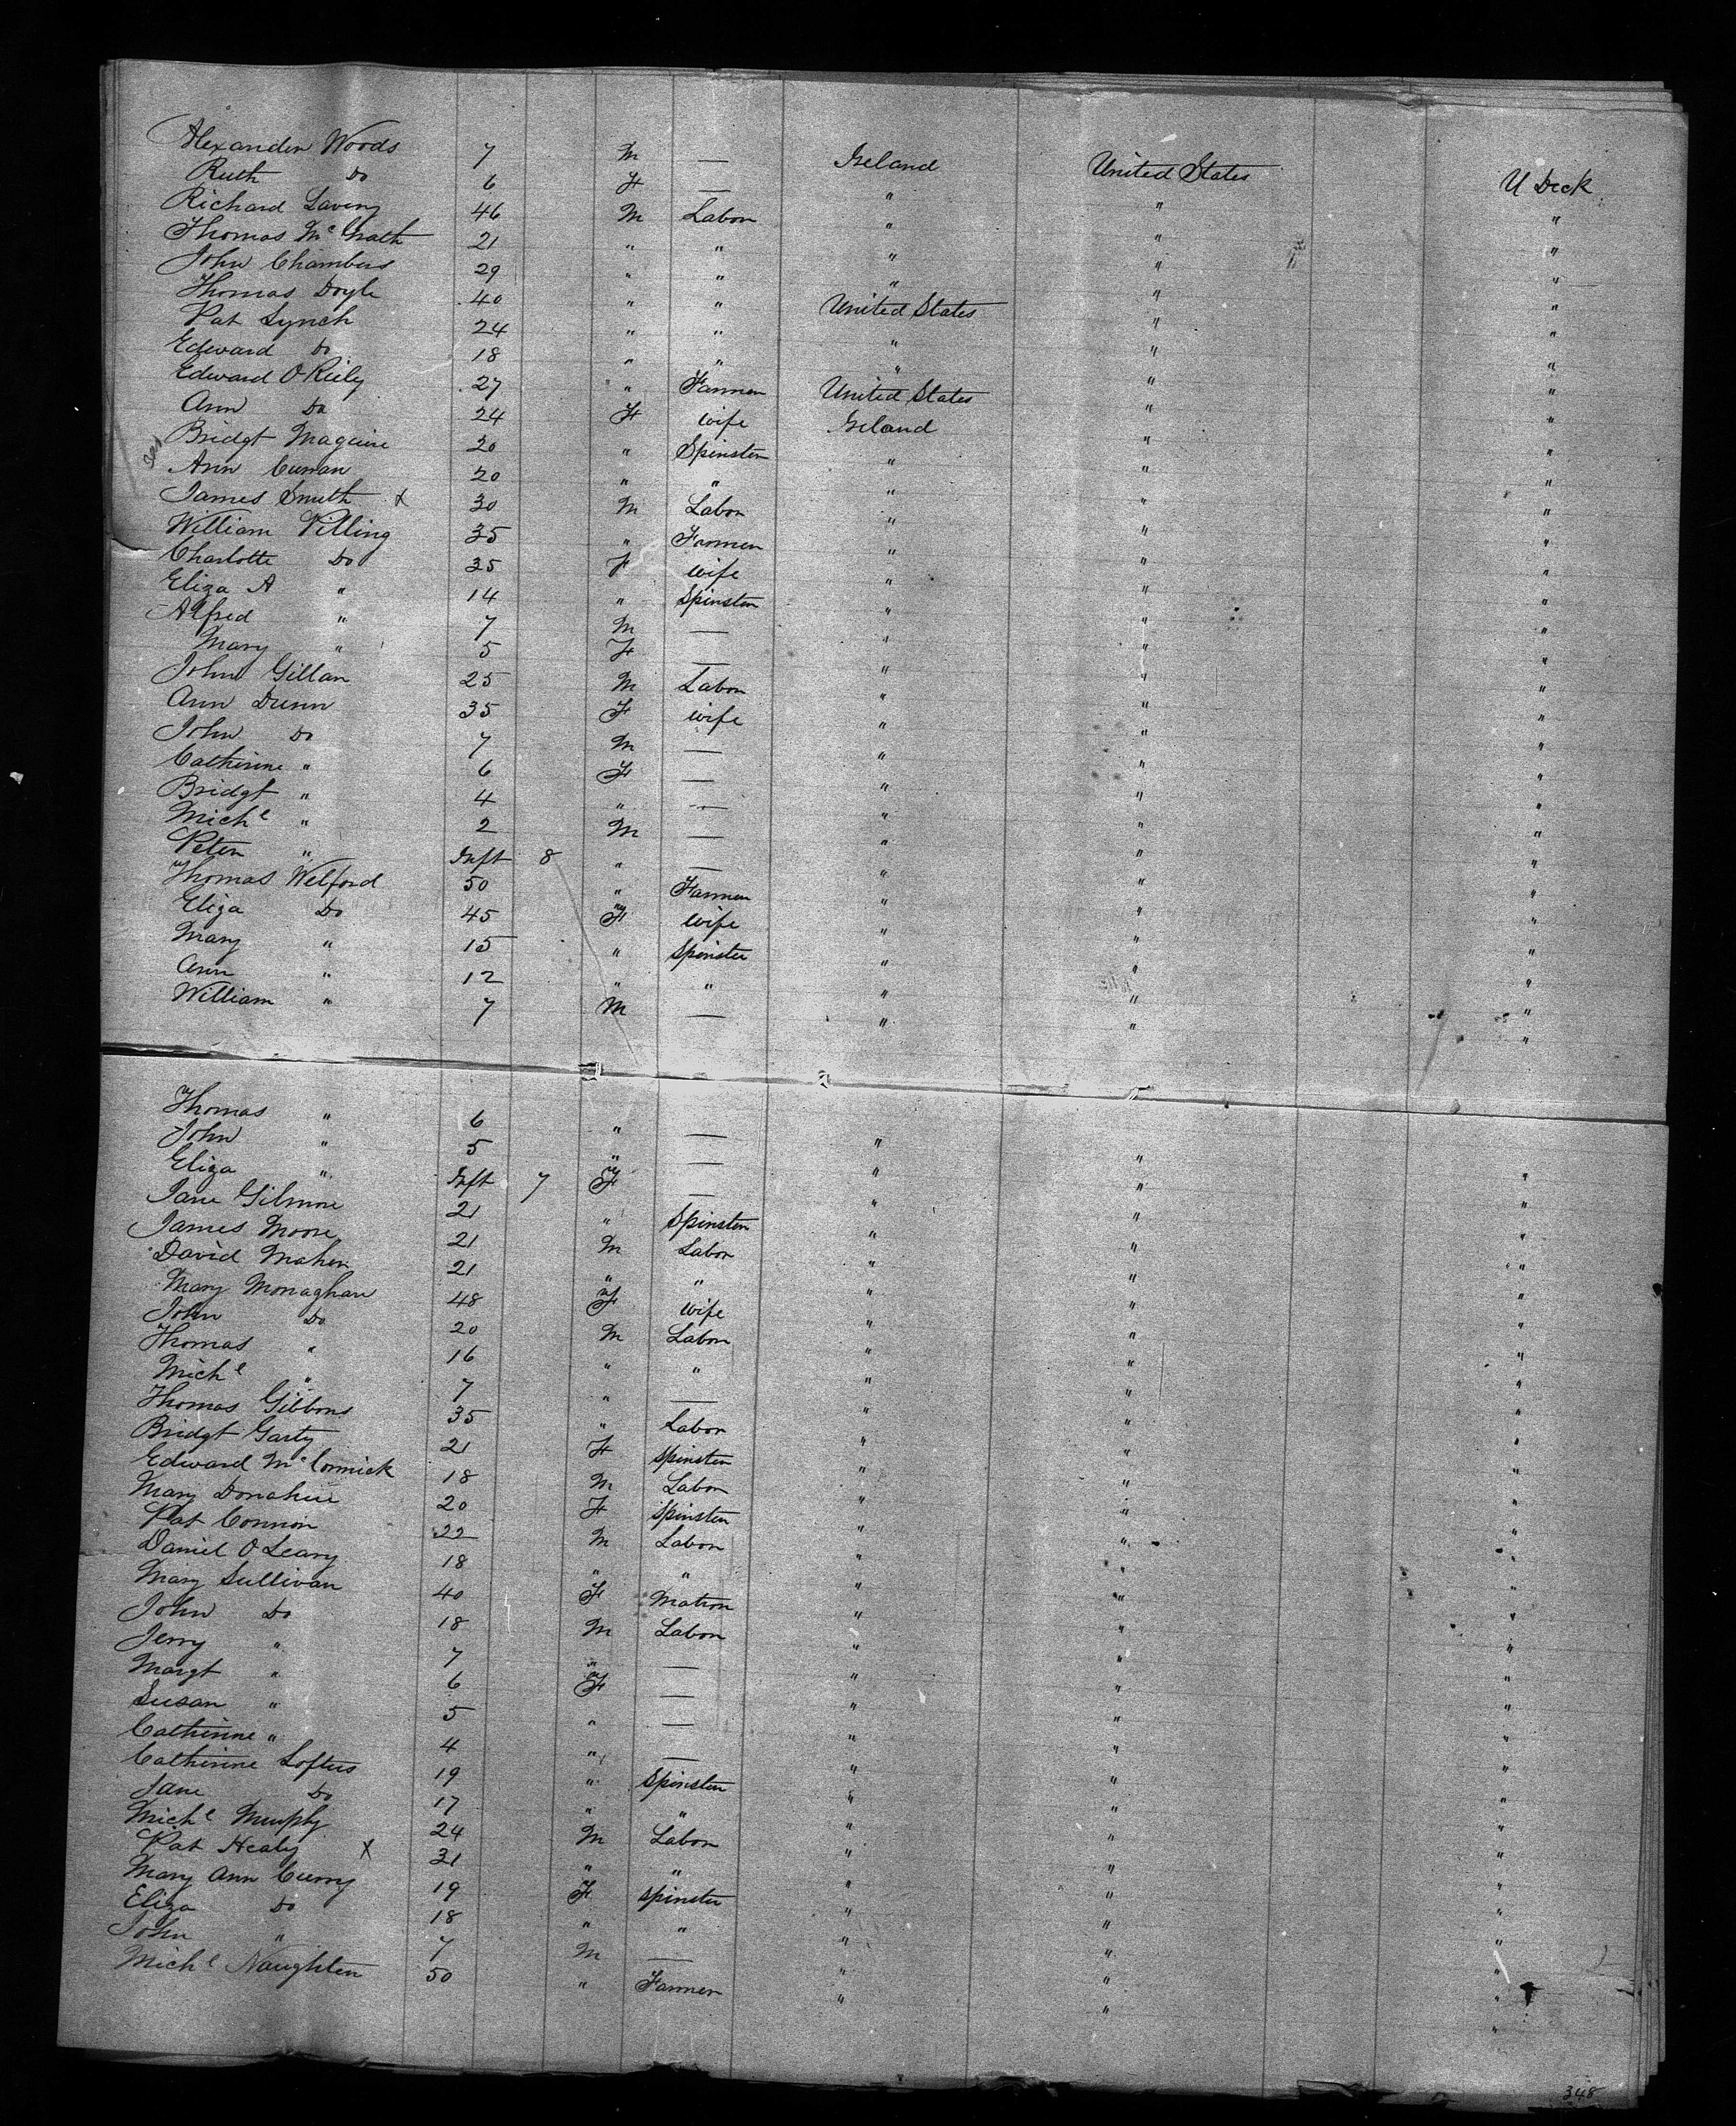 Alexander Woods 7 M — Ireland United States U Deck
Ruth Do 6 F — " " "
Richard Lavery 46 M Labor " " "
Thomas McGrath 21 " " " " "
John Chambers 29 " " " " "
Thomas Doyle 40 " " United States " "
Pat Lynch 24 " " " " "
Edward Do 18 " " " " "
Edward O Reily 27 " Farmer United States " "
Ann Do 24 F Wife Ireland " "
Bridgt Maguire 20 " Spinster " " "
Ann Curran 20 " " " " "
James Smith X 30 M Labor " " "
William Pilling 35 " Farmer " " "
Charlotte Do 35 F Wife " " "
Eliza A " 14 " Spinster " " "
Alfred " 7 M — " " "
Mary " 5 F — " " "
John Gillan 25 M Labor " " "
Ann Dunn 35 F Wife " " "
John Do 7 M — " " "
Catherine " 6 F — " " "
Bridgt " 4 " — " " "
Michl " 2 M — " " "
Peter " Inft 8 " — " " "
Thomas Welford 50 " Farmer " " "
Eliza Do 45 F Wife " " "
Mary " 15 " Spinster " " "
Ann " 12 " " " " "
William " 7 M — " " "
Thomas " 6 " — " " "
John " 5 " — " " "
Eliza " Inft 7 F — " " "
Jane Gilmore 21 " Spinster " " "
James Moore 21 M Labor " " "
David Maher 21 " " " " "
Mary Monaghan 48 F Wife " " "
John Do 20 M Labor " " "
Thomas " 16 " " " " "
Michl " 7 " — " " "
Thomas Gibbons 35 " Labor " " "
Bridgt Garty 21 F Spinster " " "
Edward McCormick 18 M Labor " " "
Mary Donahue 20 F Spinster " " "
Pat Connor 22 M Labor " " "
Daniel O Leary 18 " " " " "
Mary Sullivan 40 F Matron " " "
John Do 18 M Labor " " "
Jerry " 7 " — " " "
Margt " 6 F — " " "
Susan " 5 " — " " "
Catherine " 4 " — " " "
Catherine Loftus 19 " Spinster " " "
Jane Do 17 " " " " "
Michl Murphy 24 M Labor " " "
Pat Healy X 31 " " " " "
Mary Ann Curry 19 F Spinster " " "
Eliza Do 18 " " " " "
John " 7 M — " " "
Michl Naughten 50 " Farmer " " "
348